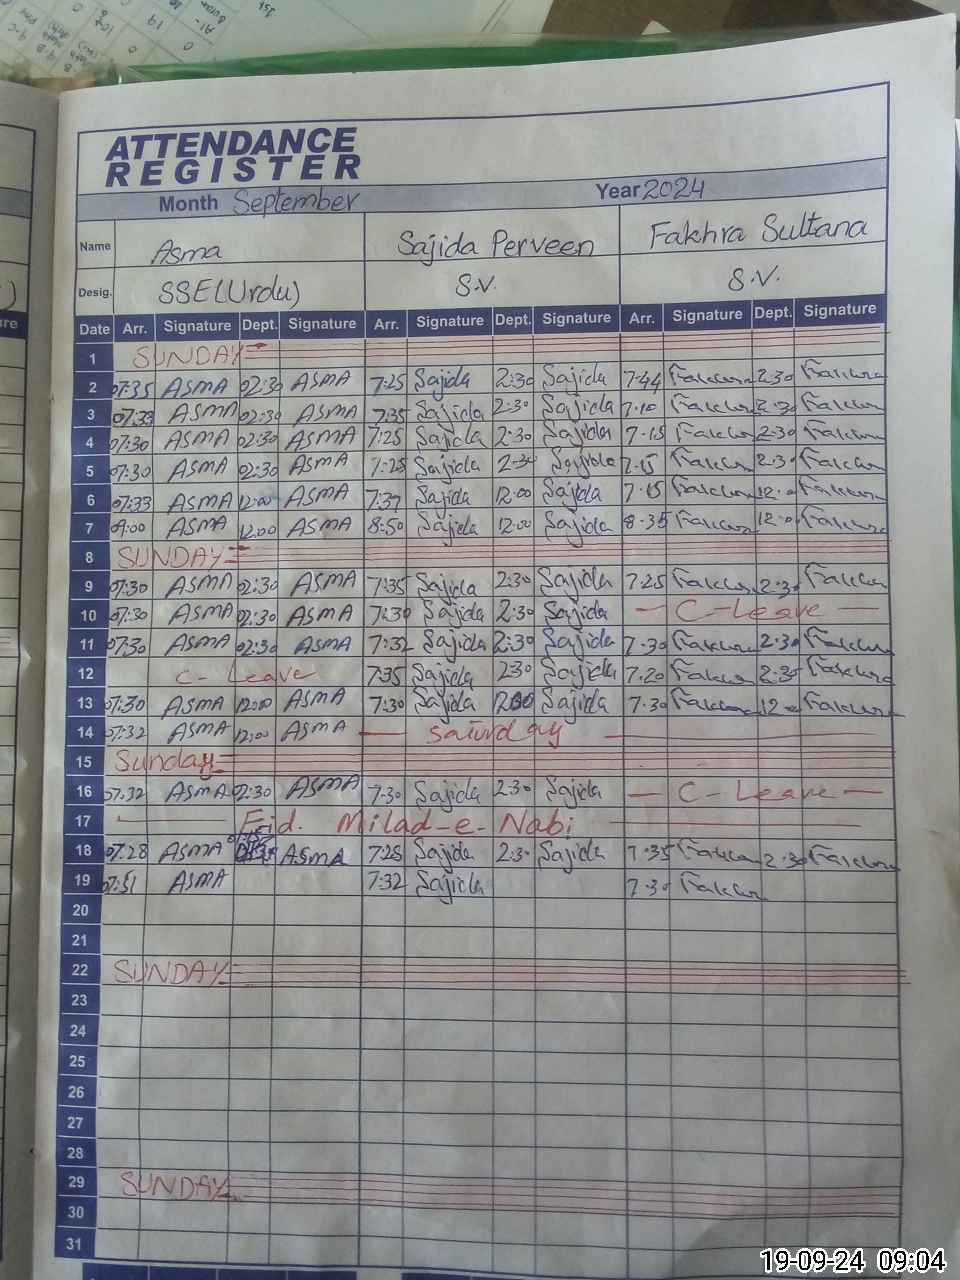 ATTENDANCE
REGISTER
Month September Year 2024
Name Asma Sajida Perveen Fakhra Sultana
Desig. SSE(Urdu) S.V. S.V.
Date Arr. Signature Dept. Signature Arr. Signature Dept. Signature Arr. Signature Dept. Signature
1 SUNDAY
2 07:35 ASMA 02:30 ASMA 7:25 Sajida 2:30 Sajida 7:44 2:30
3 07:33 ASMA 02:30 ASMA 7:35 Sajida 2:30 Sajida 7:10 2:30
4 07:30 ASMA 02:30 ASMA 7:25 Sajida 2:30 Sajida 7:15 2:30
5 07:30 ASMA 02:30 ASMA 7:25 Sajida 2:30 Sajida 7:15 2:30
6 07:33 ASMA 12:00 ASMA 7:37 Sajida 12:00 Sajida 7:15 12:0
7 09:00 ASMA 12:00 ASMA 8:50 Sajida 12:00 Sajida 8:35 12:0
8 SUNDAY
9 07:30 ASMA 02:30 ASMA 7:35 Sajida 2:30 Sajida 7:25 2:30
10 07:30 ASMA 02:30 ASMA 7:30 Sajida 2:30 Sajida C-Leave
11 07:30 ASMA 02:30 ASMA 7:32 Sajida 2:30 Sajida 7:30 2:30
12 C-Leave 7:35 Sajida 2:30 Sajida 7:20 2:30
13 07:30 ASMA 12:00 ASMA 7:30 Sajida 12:00 Sajida 7:30 12
14 07:32 ASMA 12:00 ASMA Saturday
15 Sunday
16 07:32 ASMA 02:30 ASMA 7:30 Sajida 2:30 Sajida C-Leave
17 Eid. Milad-e-Nabi
18 07:28 ASMA ASMA 7:28 Sajida 2:30 Sajida 7:35 2:30
19 07:51 ASMA 7:32 Sajida 7:30
20
21
22 SUNDAY
23
24
25
26
27
28
29 SUNDAY
30
31
19-09-24 09:04